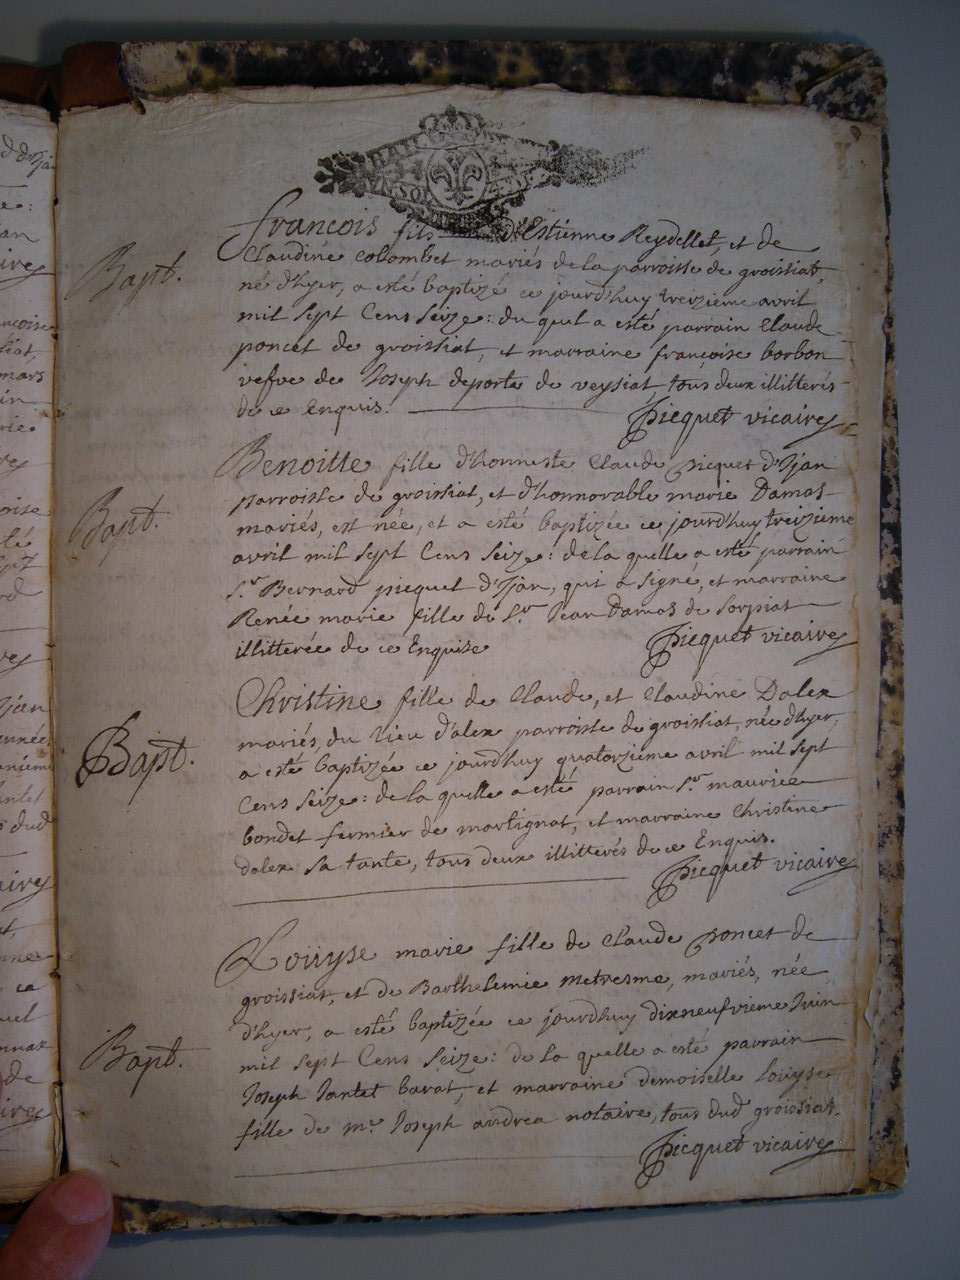 Bapt.
françois fils d'Estienne Reydellet, et de
Claudine colombet mariés de la parroisse de groissiat,
né d'hyer, a esté baptizé ce jourd'huy treizieme avril
mil sept Cens seize: du quel a esté parrain Claude
poncet de groissiat, et marraine françoise borbon
vefve de Joseph deporte de veysiat tous deux illitterés
de ce Enquis.
picquet vicaire
Bapt.
Benoitte fille d'honneste Claude picquet d'Ijan
parroisse de groissiat, et d'honnorable marie Damas
mariés, est née, et a esté baptizée ce jourd'huy treizieme
avril mil sept Cens seize: de la quelle a esté parrain
Sr. Bernard picquet d'Ijan, qui a signé, et marraine
Renée marie fille de Sr. Jean Damas de Sorpiat
illitterée de ce Enquise
picquet vicaire
Bapt.
Christine fille de Claude, et Claudine Dalex
mariés, du lieu d'alex parroisse de groissiat, née d'hyer,
a esté baptizée ce jourd'huy quatorzieme avril mil sept
Cens seize: de la quelle a esté parrain Sr. maurice
bondet fermier de martignat, et marraine Christine
dalex sa tante, tous deux illitterés de ce Enquis.
picquet vicaire
Bapt.
Louyse marie fille de Claude poncet de
groissiat, et de Barthelemie metresme, mariés, née
d'hyer, a esté baptizée ce jourd'huy dixneufvieme Juin
mil sept Cens seize: de la quelle a esté parrain
Joseph Jantet bavat, et marraine demoiselle Louyse
fille de me. Joseph andrea notaire, tous dud. groissiat.
picquet vicaire